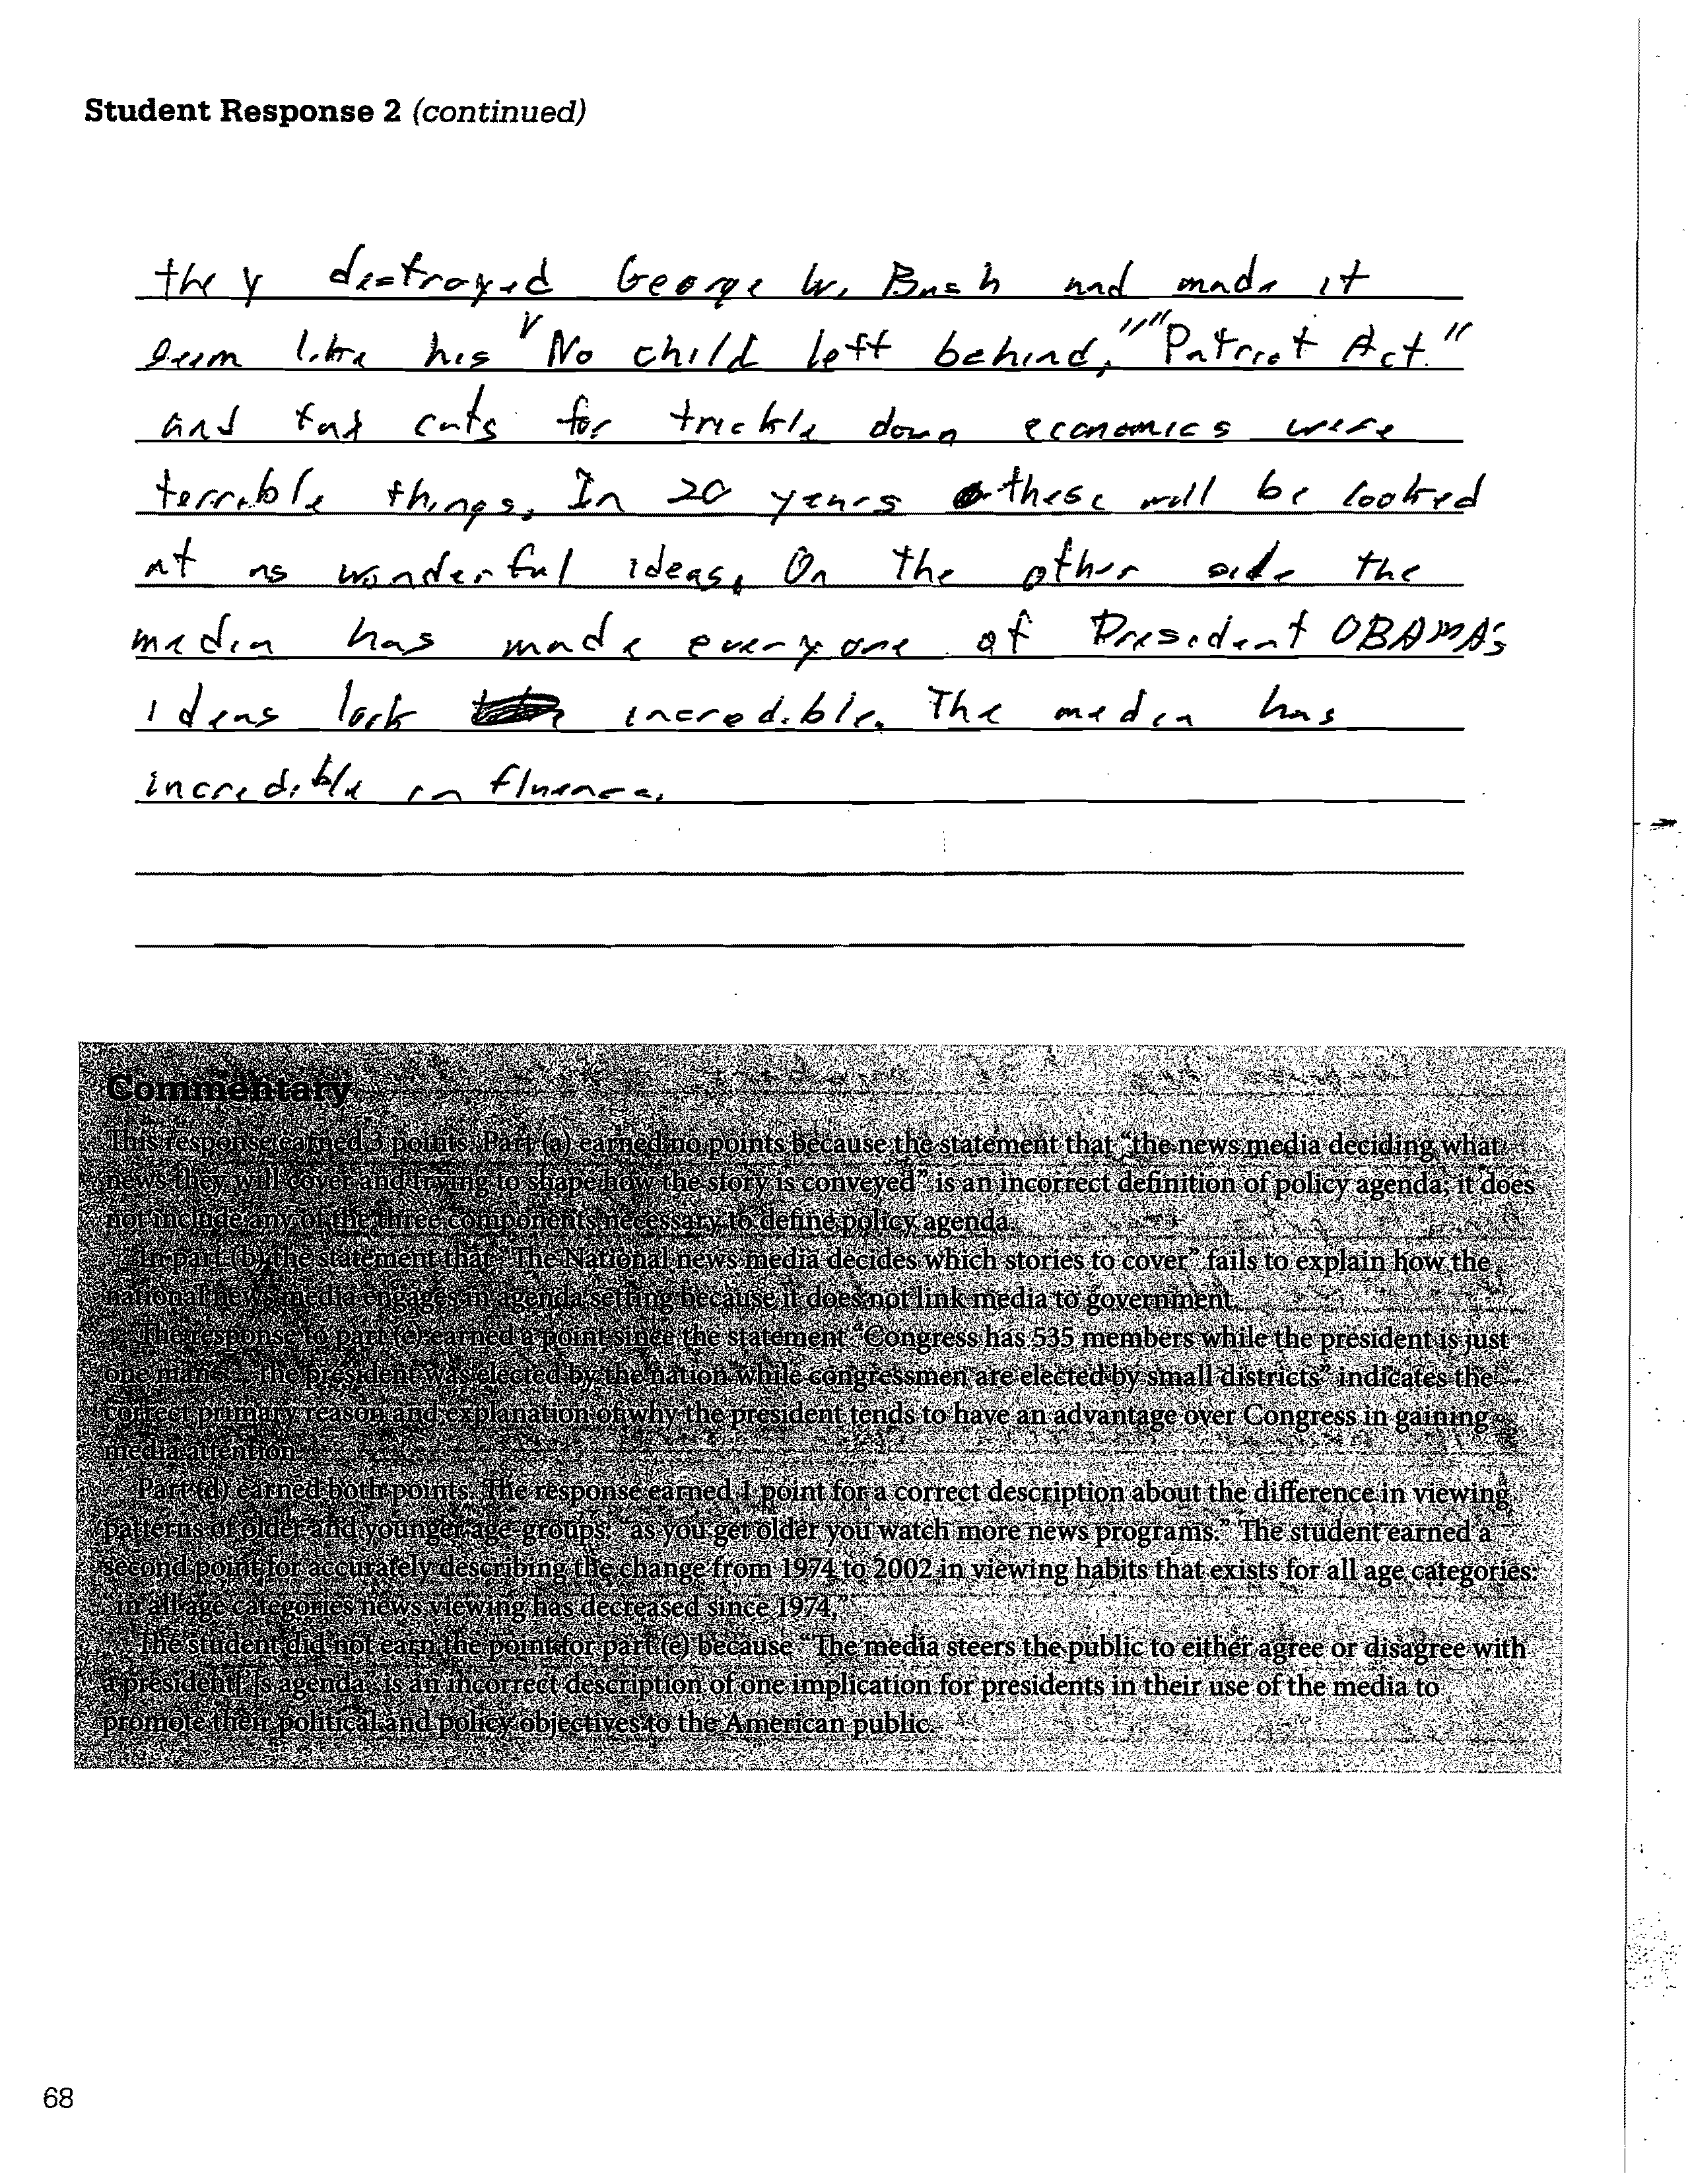 Student Response 2 (continued)
they destroyed George W. Bush and made it
seem like his "No child left behind," "Patriot Act"
and tax cuts for trickle down economics were
terrible things. In 20 years these will be looked
at as wonderful ideas. On the other side the
media has made everyone of President OBAMA's
ideas look incredible. The media has
incredible influence.
Commentary
This response earned 3 points. Part (a) earned no points because the statement that "the news media deciding what
news they will cover and trying to shape how the story is conveyed" is an incorrect definition of policy agenda; it does
not include any of the three components necessary to define policy agenda.
In part (b) the statement that "The National news media decides which stories to cover" fails to explain how the
national news media engages in agenda setting because it does not link media to government.
The response to part (c) earned a point since the statement "Congress has 535 members while the president is just
one man . . . the president was elected by the nation while congressmen are elected by small districts" indicates the
correct primary reason and explanation of why the president tends to have an advantage over Congress in gaining
media attention.
Part (d) earned both points. The response earned 1 point for a correct description about the difference in viewing
patterns of older and younger age groups: "as you get older you watch more news programs." The student earned a
second point for accurately describing the change from 1974 to 2002 in viewing habits that exists for all age categories:
"in all age categories news viewing has decreased since 1974."
The student did not earn the point for part (e) because "The media steers the public to either agree or disagree with
a president[']s agenda" is an incorrect description of one implication for presidents in their use of the media to
promote their political and policy objectives to the American public.
68